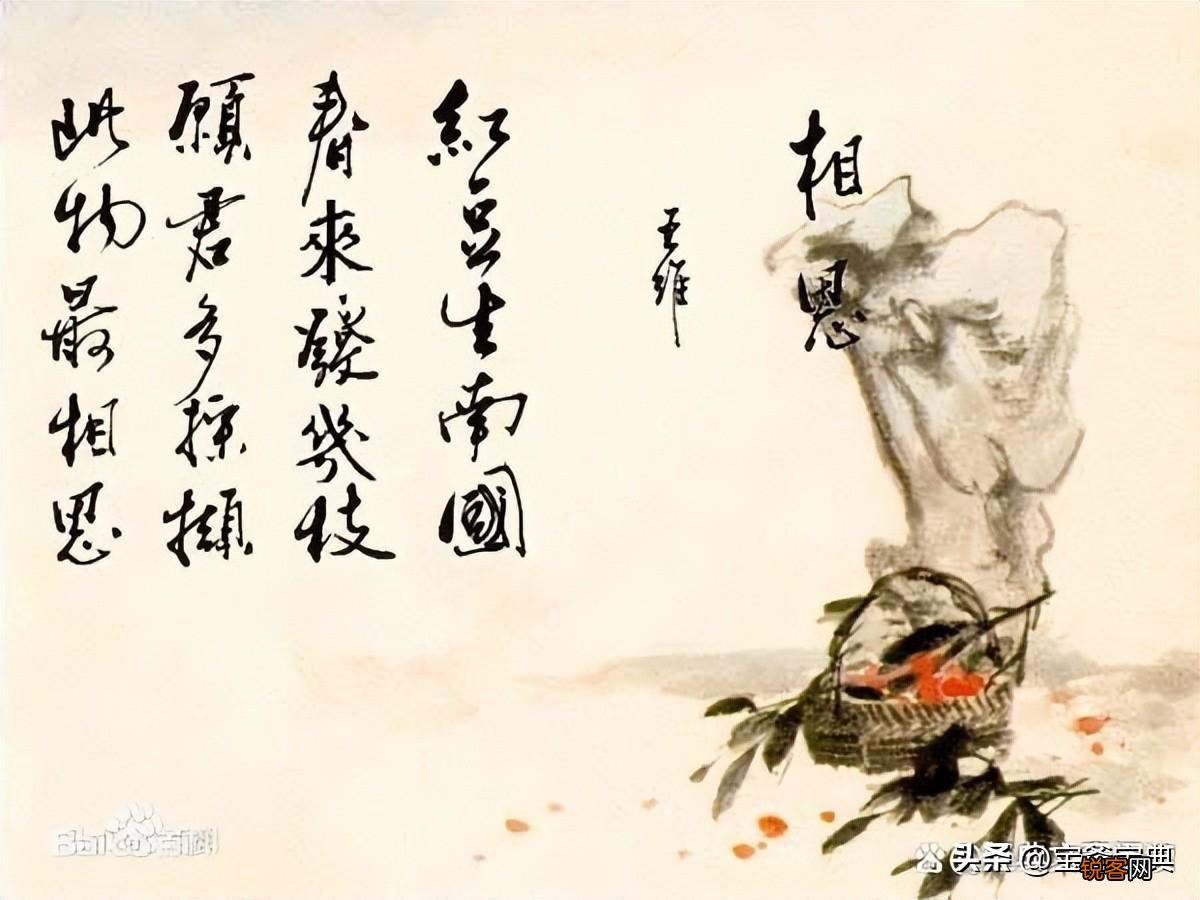 相思
王維
紅豆生南國
春來發幾枝
願君多採擷
此物最相思
Bai百科
头条 @宝爸宝典
锐客网